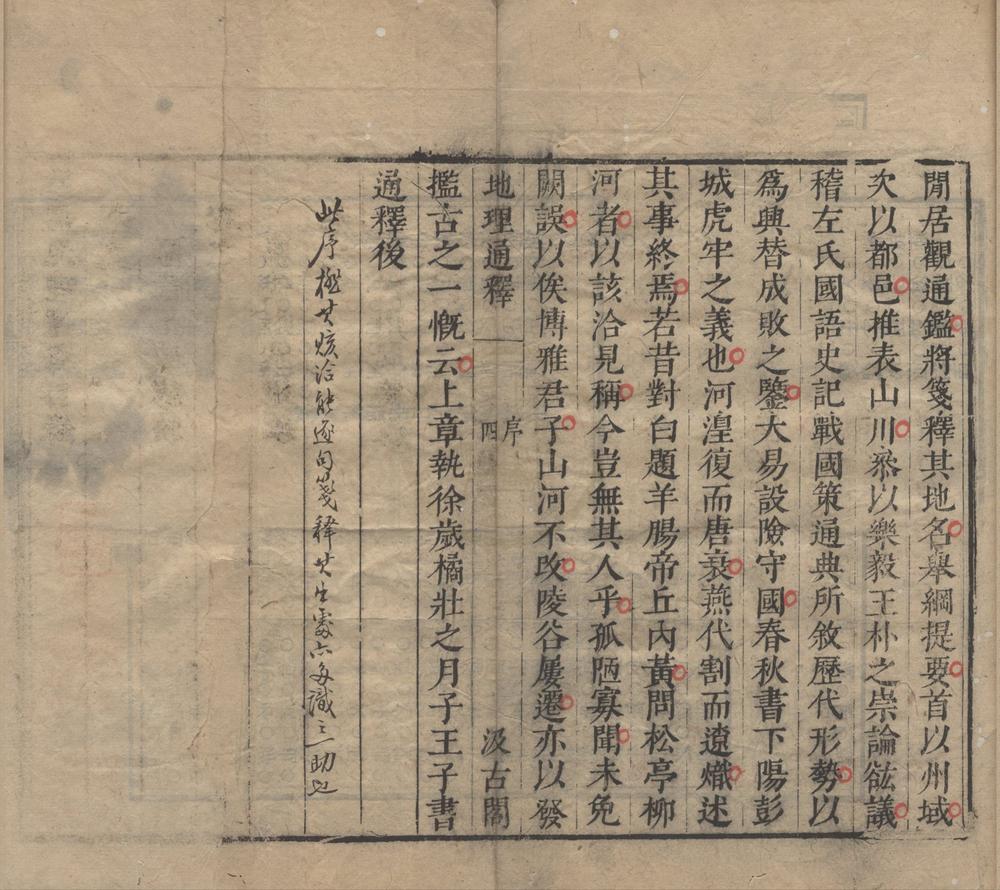 閒居觀通鑑將箋釋其地名舉綱提要首以州域
次以都邑推表山川叅以樂毅王朴之崇論谹議
稽左氏國語史記戰國策通典所敘歷代形勢以
爲興替成敗之鑒大易設險守國春秋書下陽彭
城虎牢之義也河湟復而唐衰燕代割而遼熾述
其事終焉若昔對白題羊腸帝丘內黃問松亭柳
河者以該洽見稱今豈無其人乎孤陋寡聞未免
闕誤以俟博雅君子山河不改陵谷屢遷亦以發
地理通釋 序 四 汲古閣
攬古之一慨云上章執徐歲橘壯之月子王子書
通釋後
此序極其賅洽能逐句箋釋其出處六多識之一助也